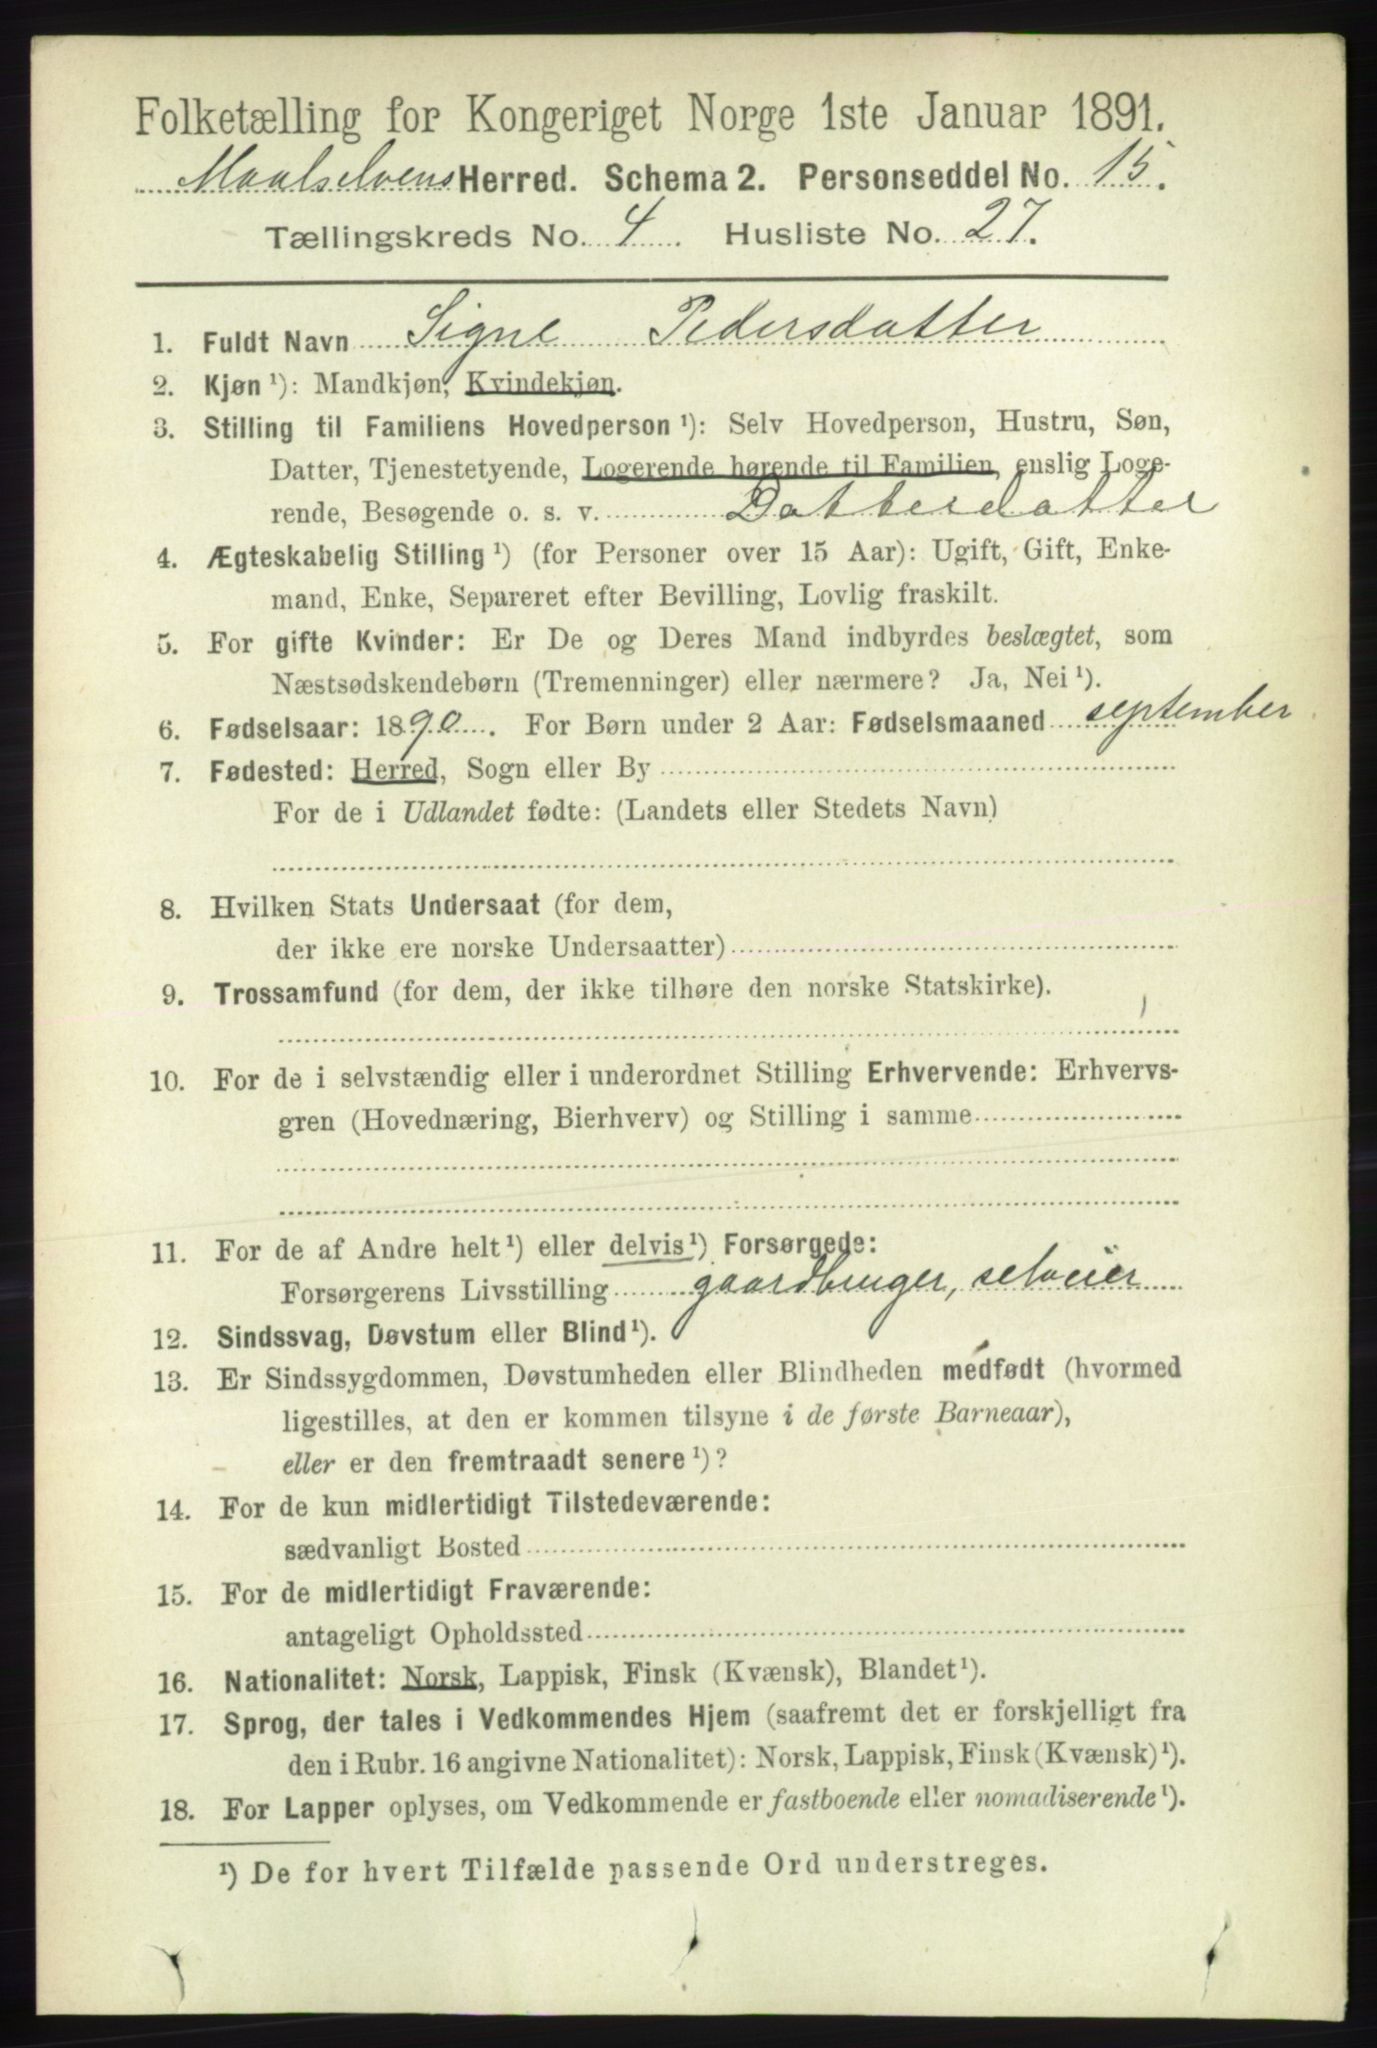 Folketælling for Kongeriget Norge 1ste Januar 1891.
Maalselvens Herred. Schema 2. Personseddel No. 15.
Tællingskreds No. 4 Husliste No. 27.
1. Fuldt Navn Signe Pedersdatter
2. Kjøn ¹): Mandkjøn, Kvindekjøn.
3. Stilling til Familiens Hovedperson ¹): Selv Hovedperson, Hustru, Søn,
Datter, Tjenestetyende, Logerende hørende til Familien, enslig Loge-
rende, Besøgende o. s. v. Datterdatter
4. Ægteskabelig Stilling ¹) (for Personer over 15 Aar): Ugift, Gift, Enke-
mand, Enke, Separeret efter Bevilling, Lovlig fraskilt.
5. For gifte Kvinder: Er De og Deres Mand indbyrdes beslægtet, som
Næstsødskendebørn (Tremenninger) eller nærmere? Ja, Nei ¹).
6. Fødselsaar: 1890. For Børn under 2 Aar: Fødselsmaaned september
7. Fødested: Herred, Sogn eller By
For de i Udlandet fødte: (Landets eller Stedets Navn)
8. Hvilken Stats Undersaat (for dem,
der ikke ere norske Undersaatter)
9. Trossamfund (for dem, der ikke tilhøre den norske Statskirke).
10. For de i selvstændig eller i underordnet Stilling Erhvervende: Erhvervs-
gren (Hovednæring, Bierhverv) og Stilling i samme
11. For de af Andre helt ¹) eller delvis ¹) Forsørgede:
Forsørgerens Livsstilling gaardbruger, selveier
12. Sindssvag, Døvstum eller Blind ¹).
13. Er Sindssygdommen, Døvstumheden eller Blindheden medfødt (hvormed
ligestilles, at den er kommen tilsyne i de første Barneaar),
eller er den fremtraadt senere ¹)?
14. For de kun midlertidigt Tilstedeværende:
sædvanligt Bosted
15. For de midlertidigt Fraværende:
antageligt Opholdssted
16. Nationalitet: Norsk, Lappisk, Finsk (Kvænsk), Blandet ¹).
17. Sprog, der tales i Vedkommendes Hjem (saafremt det er forskjelligt fra
den i Rubr. 16 angivne Nationalitet): Norsk, Lappisk, Finsk (Kvænsk) ¹).
18. For Lapper oplyses, om Vedkommende er fastboende eller nomadiserende ¹).
¹) De for hvert Tilfælde passende Ord understreges.